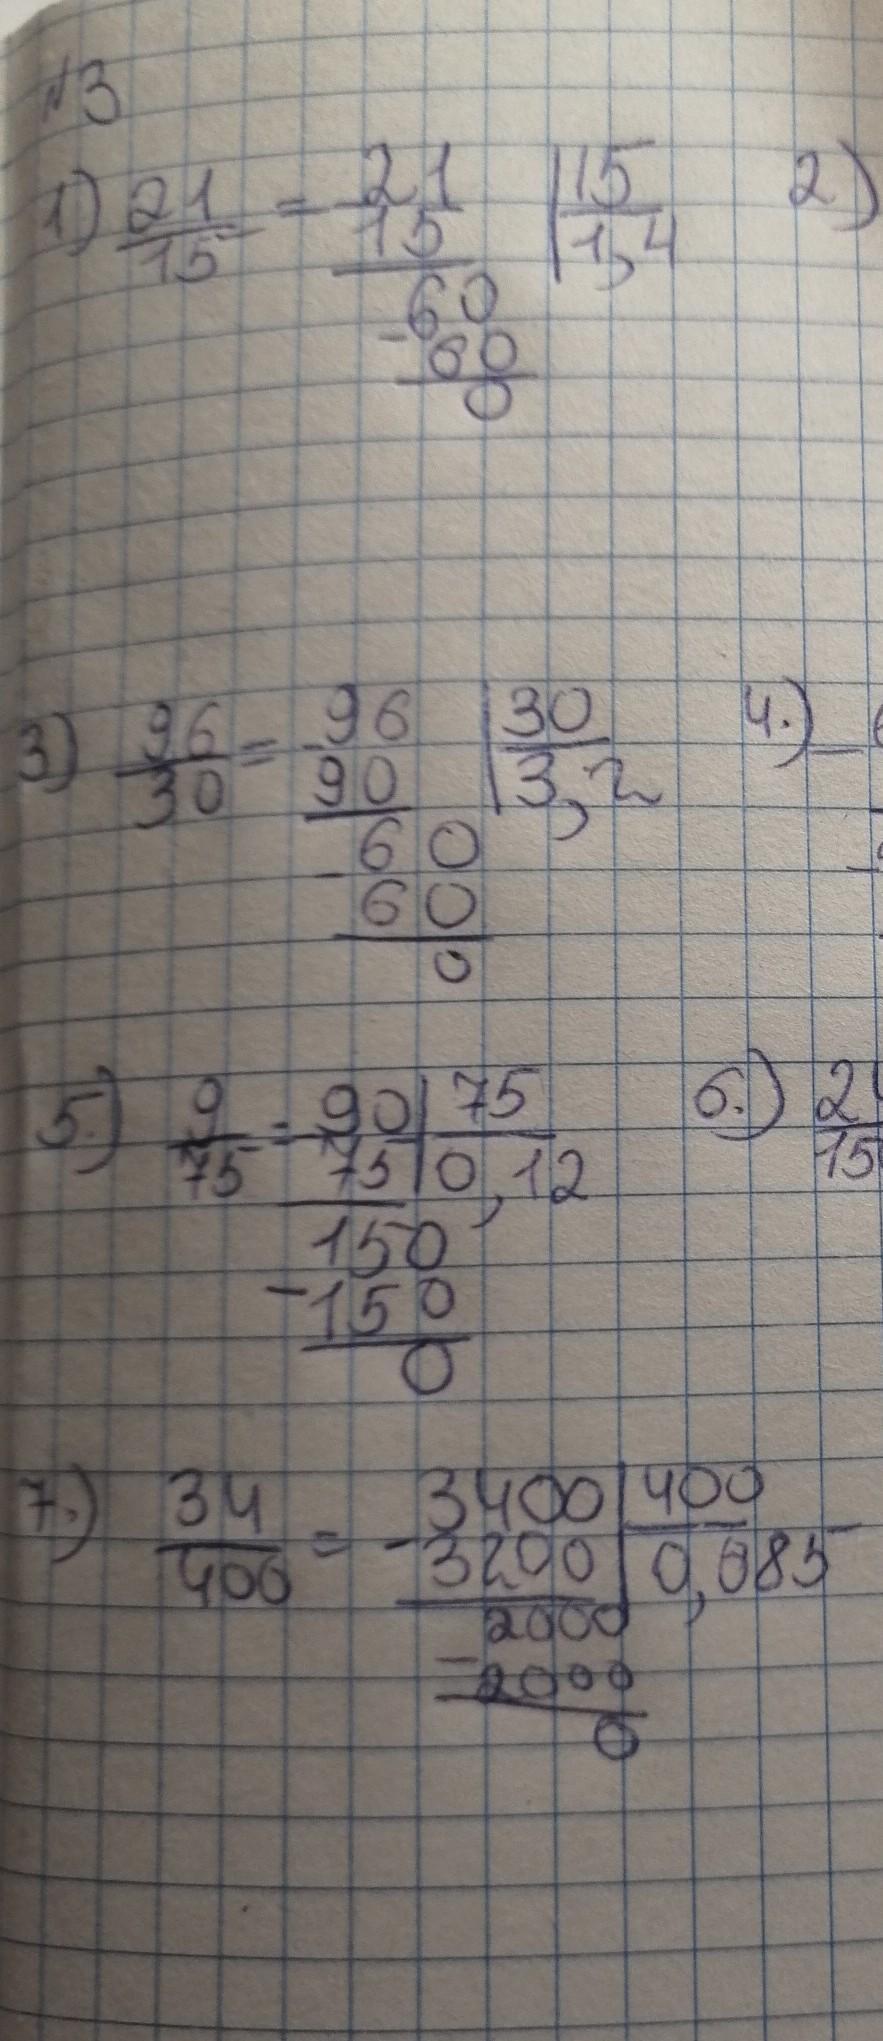 №3
1) 21/15 = 21 | 15 2)
15 | 1,4
60
- 60
0
3) 96/30 = - 96 | 30 4.) -
90 | 3,2
- 60
60
0
5.) 9/75 = - 90 | 75 6.)
75 | 0,12
150
- 150
0
7.) 34/400 = - 3400 | 400
3200 | 0,085
2000
- 2000
0